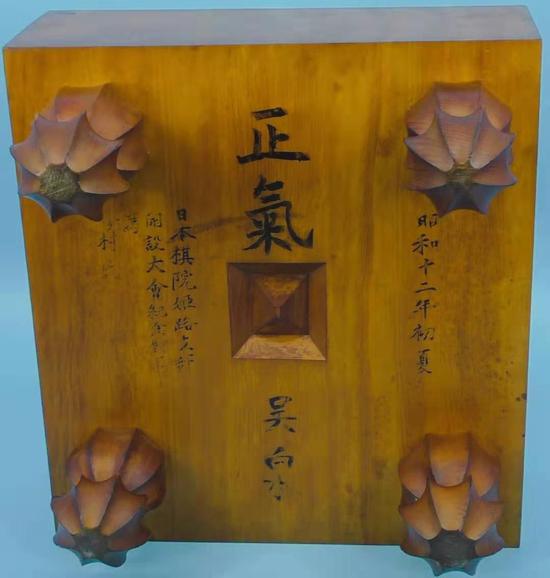 昭和十二年初夏
正氣
吳泉
日本棋院姫路支部
開設大會紀念
為
村